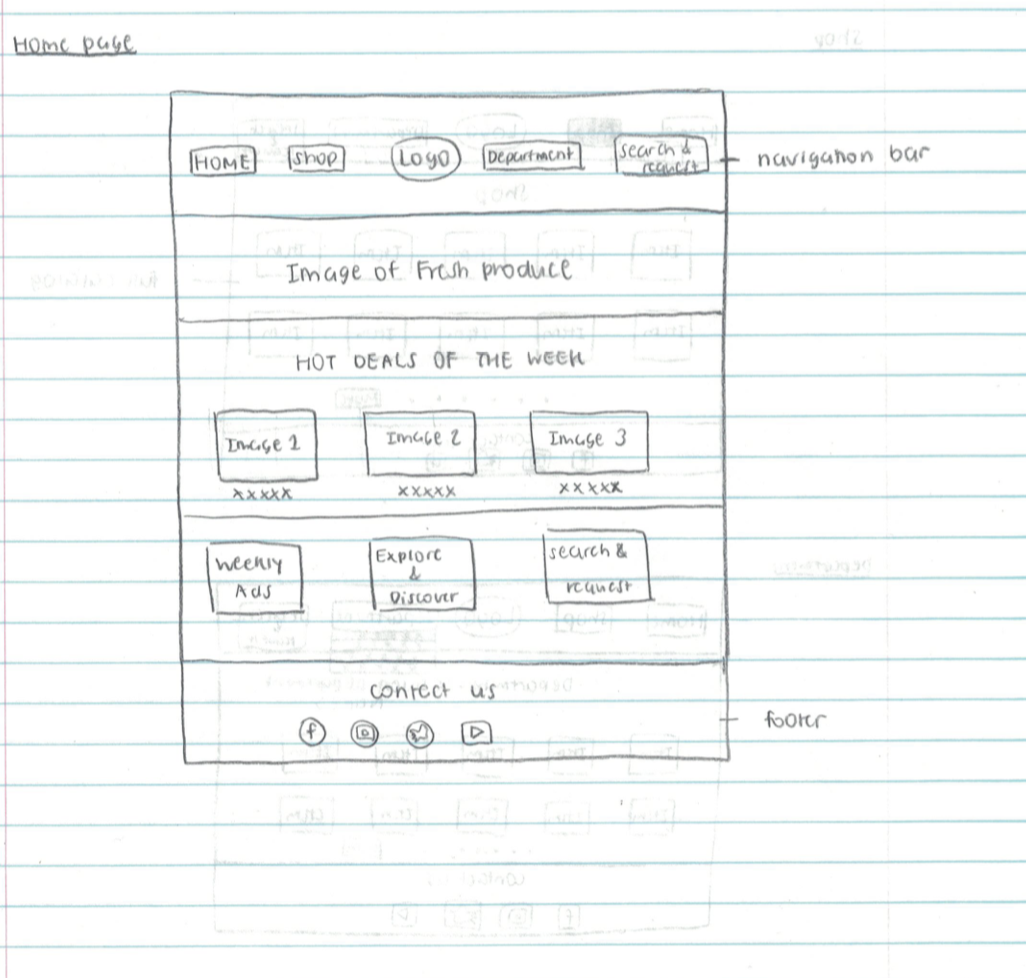 Home page
HOME shop Logo Department search &
request
navigation bar
Image of Fresh produce
HOT DEALS OF THE WEEK
Image 1 Image 2 Image 3
xxxxx xxxxx xxxxx
weekly
Ads
Explore
&
Discover
search &
request
contact us
f
footer